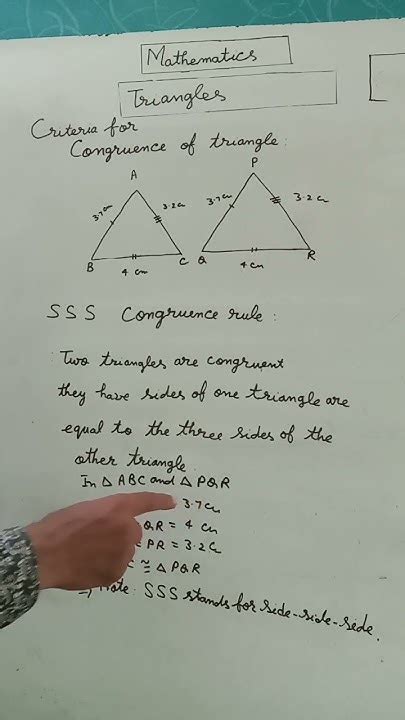 Mathematics
Triangles
Criteria for
Congruence of triangle:
A
P
3.7cm
3.2cm
3.7cm
3.2cm
B
4 cm
C
Q
4 cm
R
SSS Congruence rule:
Two triangles are congruent
they have sides of one triangle are
equal to the three sides of the
other triangle.
In △ ABC and △ PQR
3.7cm
QR = 4 cm
PR = 3.2cm
≅ △ PQR
⇒ Note: SSS stands for side-side-side.